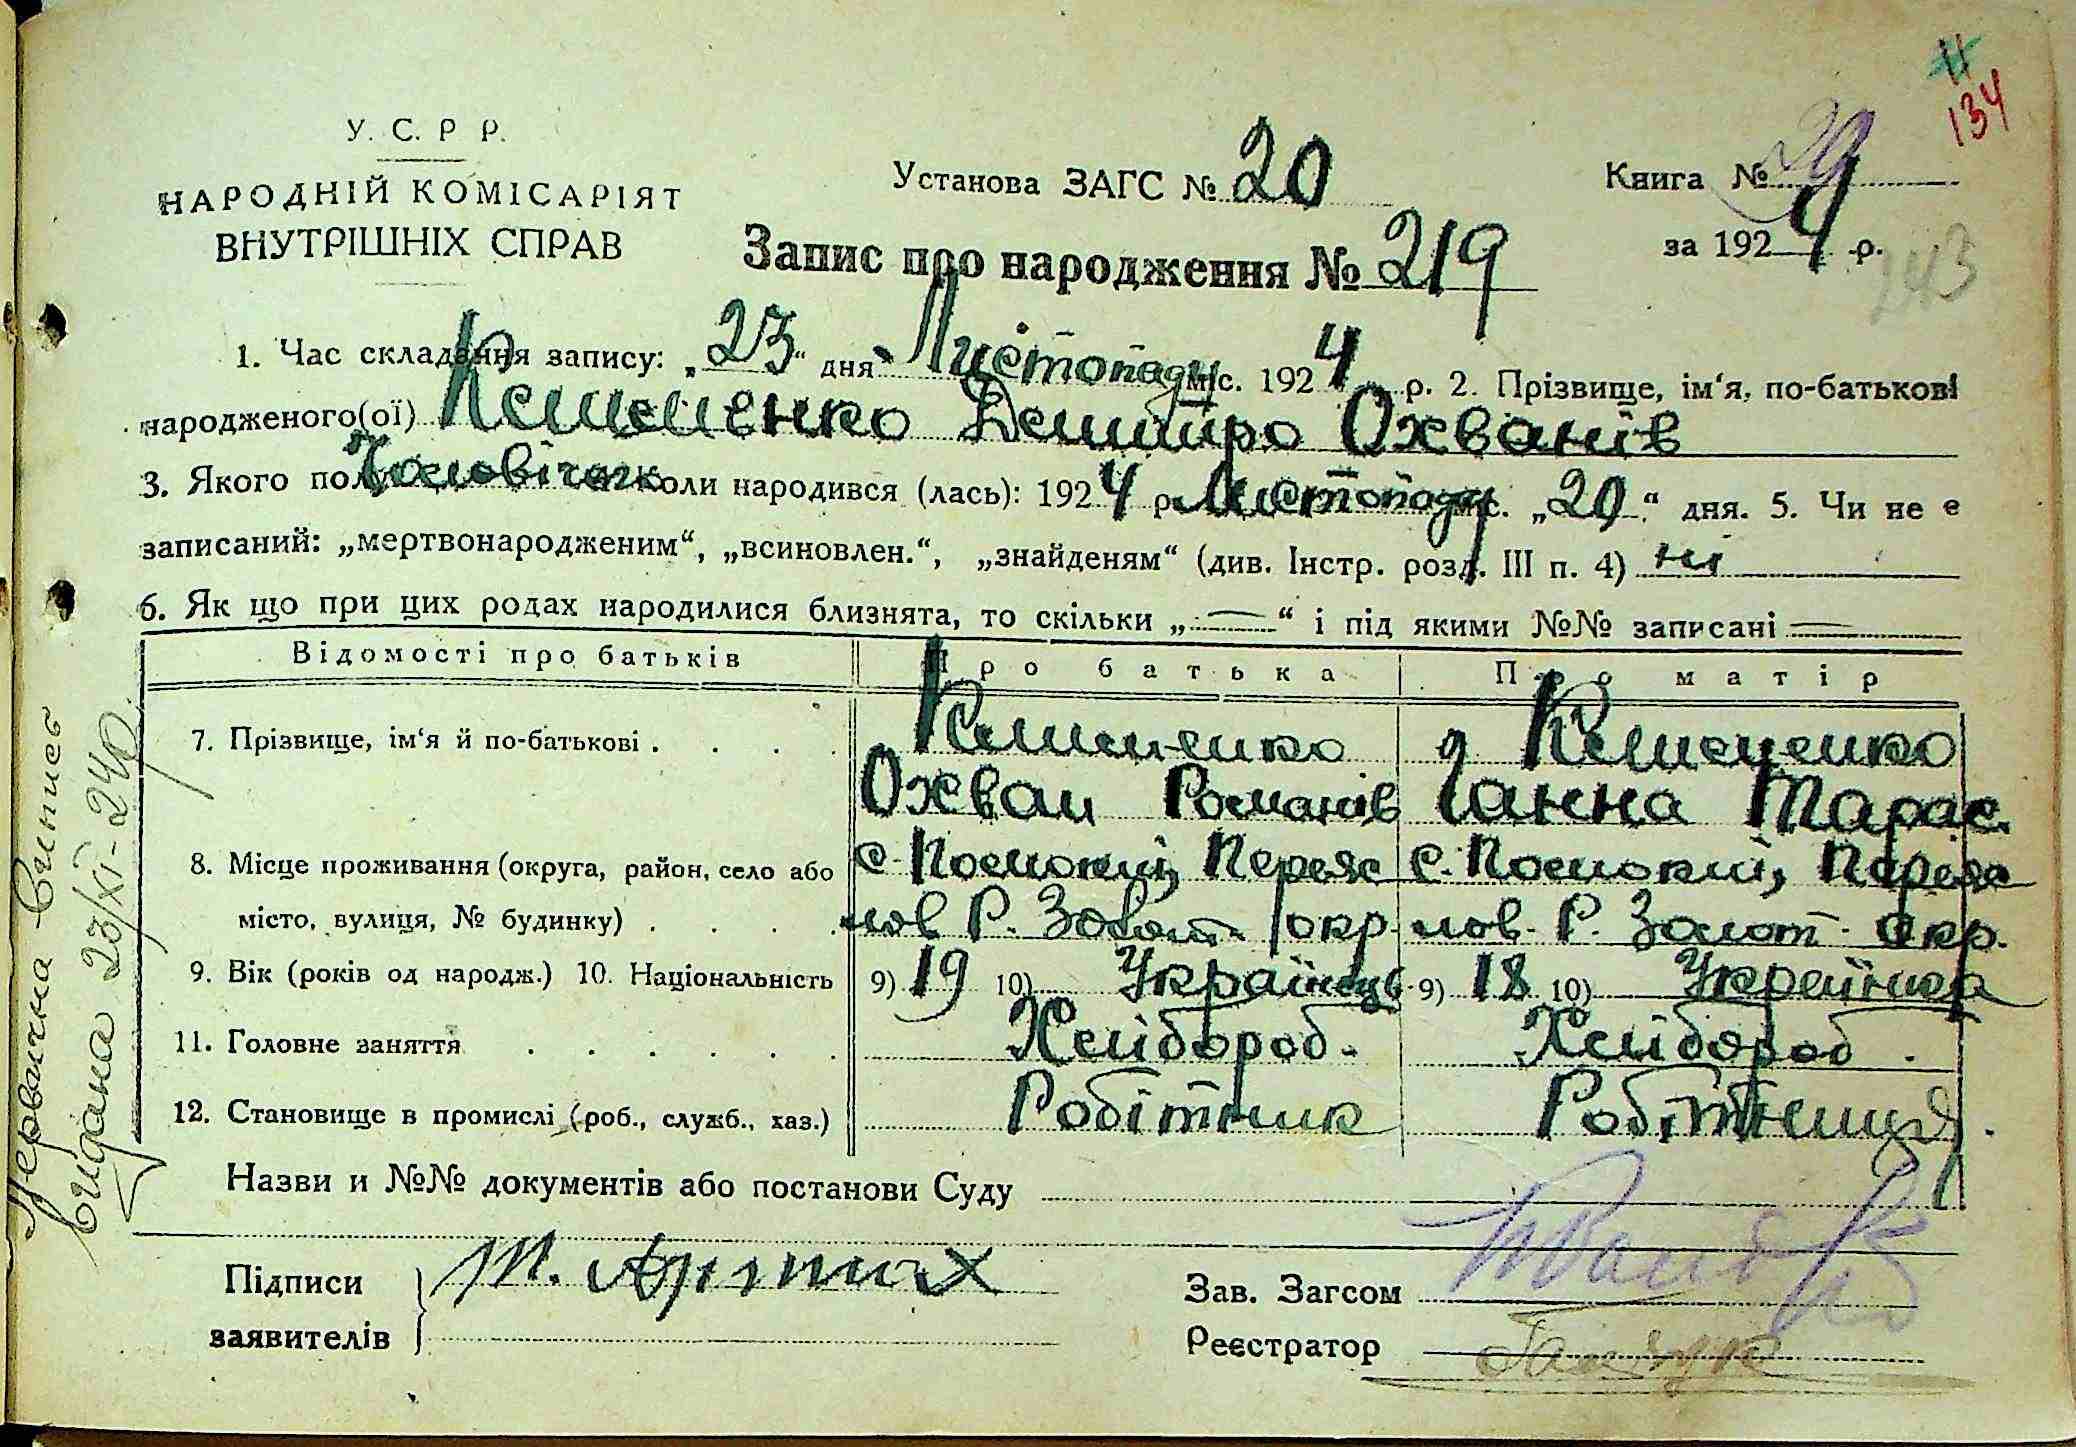 11
134
У. С. Р Р.
НАРОДНІЙ КОМІСАРІЯТ
ВНУТРІШНІХ СПРАВ
Установа ЗАГС № 20
Книга № 29
за 1924 р.
243
Запис про народження № 219
1. Час складання запису: „23“ дня Листопаду міс. 1924 р. 2. Прізвище, ім‘я, по-батькові
народженого(ої) Дмитро Охванів
3. Якого полу Чоловіческ коли народився (лась): 1924 р. Листопаду міс. „20“ дня. 5. Чи не є
записаний: „мертвонародженим“, „всиновлен.“, „знайденям“ (див. Інстр. розд. III п. 4) ні
6. Як що при цих родах народилися близнята, то скільки „—“ і під якими №№ записані —
Відомості про батьків Про батька Про матір
7. Прізвище, ім‘я й по-батькові . . . .
Охван Романів Ганна Тарас.
8. Місце проживання (округа, район, село або с. Переяс с. Переяс
місто, вулиця, № будинку) . . . . лов Р. Золот. окр. лов. Р. Золот. окр.
9. Вік (років од народж.) 10. Національність 9) 19 10) Українець 9) 18 10) Українка
11. Головне заняття . . . . . . Хлібороб. Хлібороб.
12. Становище в промислі (роб., служб., хаз.) Робітник Робітниця
Назви и №№ документів або постанови Суду
Підписи
заявителів
Т.
Зав. Загсом
Реєстратор
Первична випись
видана 23/XI-24 р.